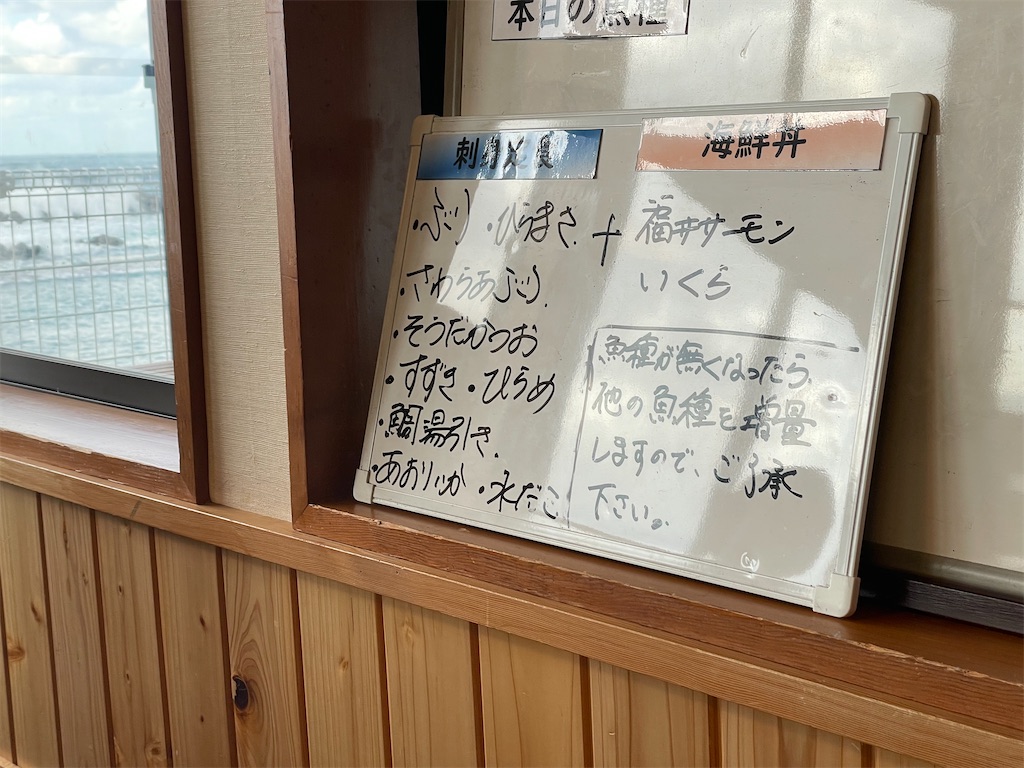 本日の魚種
刺身定食
海鮮丼
・ぶり ・ひらまさ
・さわらあぶり
・そうだがつお
・すずき ・ひらめ
・鯛湯引き
・あおりいか ・水だこ
+
福井サーモン
いくら
魚種が無くなったら、
他の魚種を増量
しますので、ご了承
下さい。